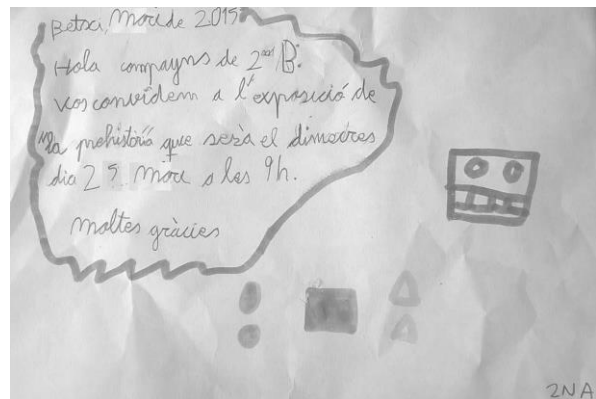 Betxi, de 2015
Hola compayns de 2on B:
vos convidem a l'exposició de
la prehistòria que serà el dimecres
dia 25 a les 9h.
Moltes gràcies
2NA